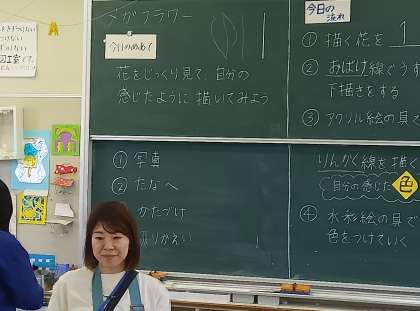 メガフラワー
今日のめあて
花をじっくり見て、自分の
感じたように描いてみよう
今日の
流れ
① 描く花を 1
② おばけ線でうす
下描きをする
③ アクリル絵の具で
りんかく線を描く
自分の感じた
色
④ 水彩絵の具で
色をつけていく
① 写真
② たなへ
かたづけ
ふりかえい